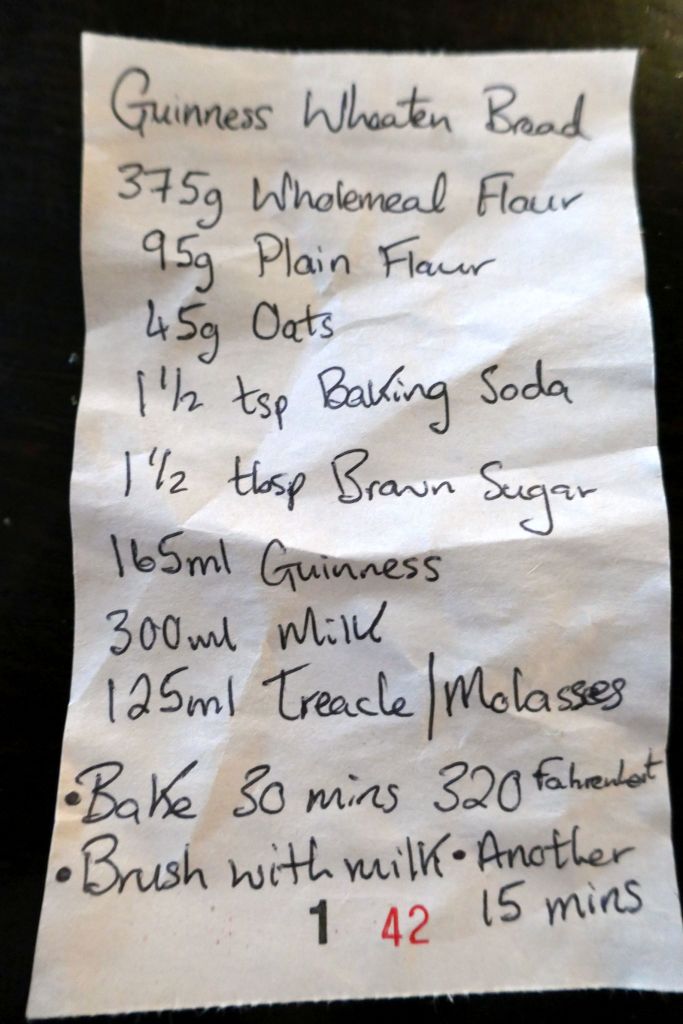 Guinness Wheaten Bread
375g Wholemeal Flour
95g Plain Flour
45g Oats
1 1/2 tsp Baking Soda
1 1/2 tbsp Brown Sugar
165ml Guinness
300ml Milk
125ml Treacle/Molasses
• Bake 30 mins 320 Fahrenheit
• Brush with milk • Another
15 mins
1 42